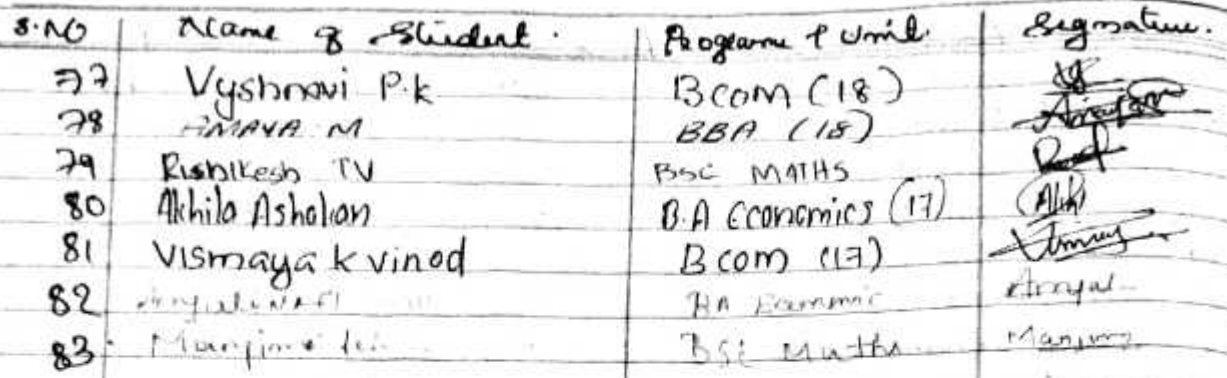 S.NO Name of Student. Programe & Unit. Signature.
77 Vyshnavi P.k Bcom (18)
78 AMAYA M BBA (18)
79 Rishikesh TV BSC MATHS
80 Akhila Ashokan B.A Economics (17) Akh
81 Vismaya k vinod B com (17)
82 BA Economic
83 Manjima BSC Maths Manjima